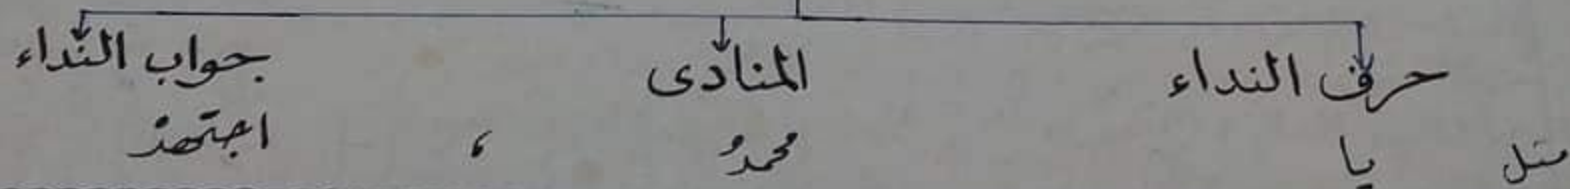 حرف النداء المنادى جواب النداء
مثل يا محمدُ ، اجتهدْ